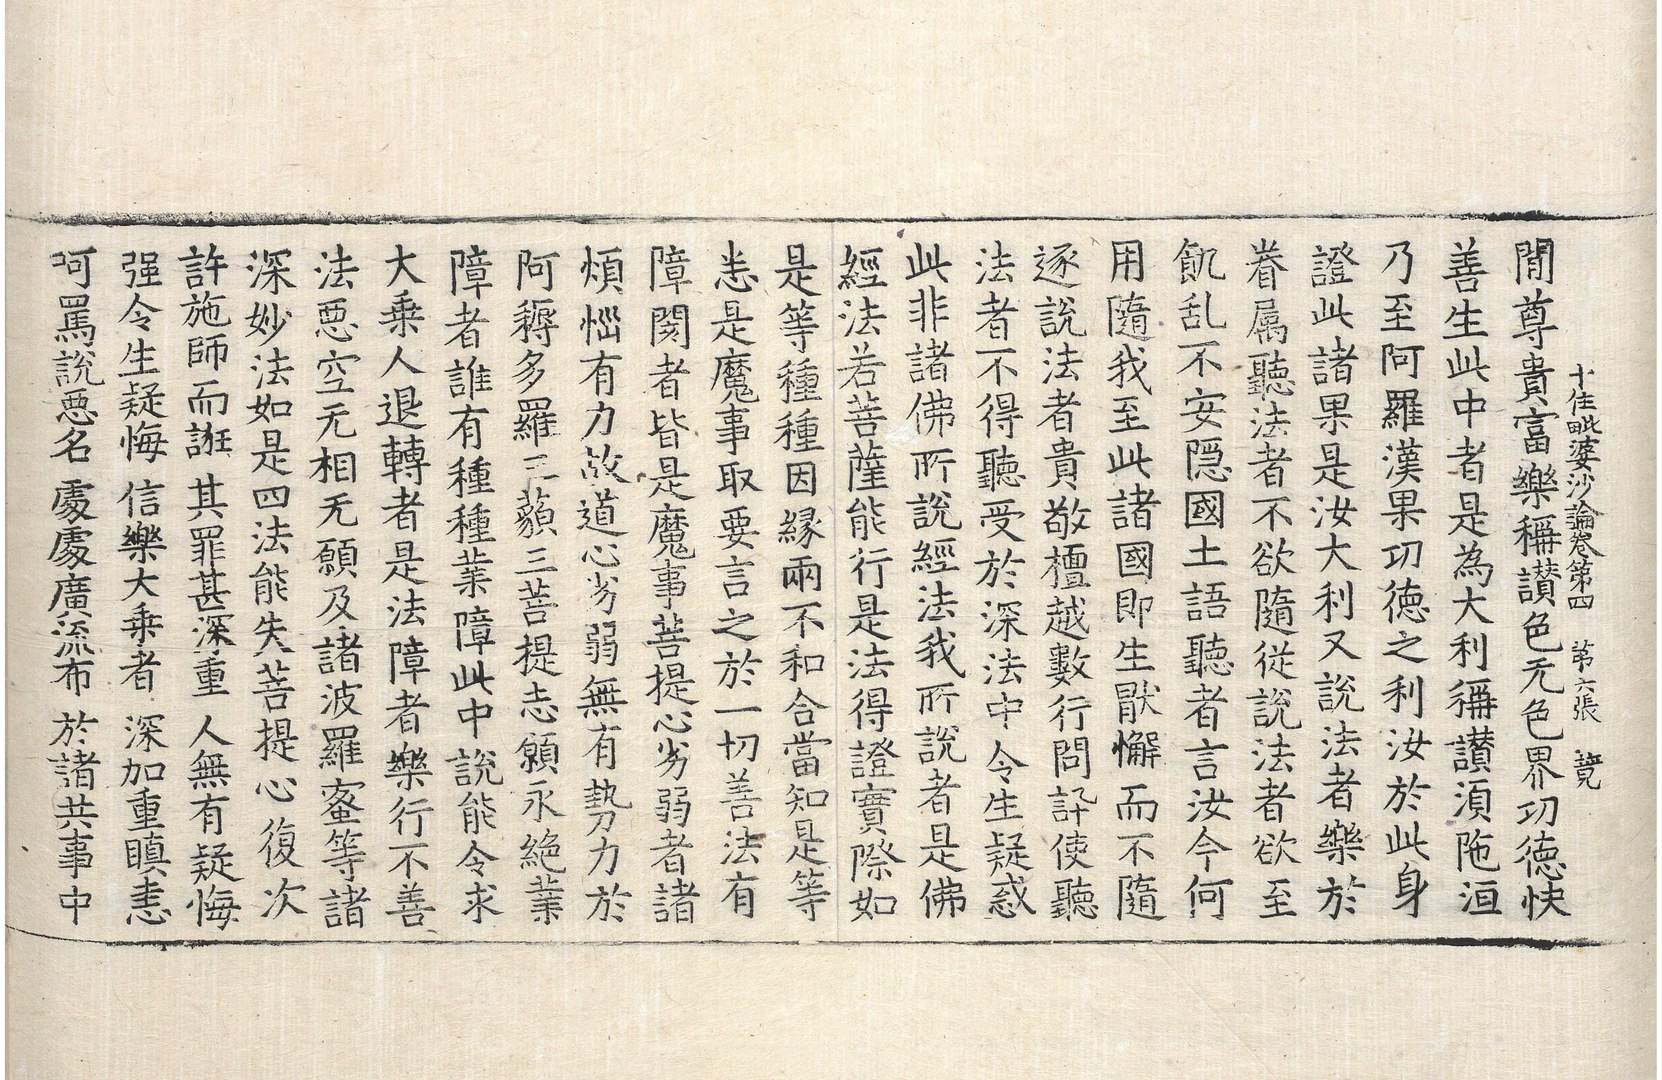 十住毗婆沙論卷第四　第六張　競
閒尊貴富樂稱讃色无色界功德快
善生此中者是為大利稱讃湏陁洹
乃至阿羅漢果功德之利汝於此身
證此諸果是汝大利又說法者樂於
眷属聽法者不欲隨従說法者欲至
飢乱不安隠國土語聽者言汝今何
用隨我至此諸國即生猒懈而不隨
逐說法者貴敬檀越數行問訊使聽
法者不得聽受於深法中令生疑惑
此非諸佛所說經法我所說者是佛
經法若菩薩能行是法得證實際如
是等種種因緣兩不和合當知是等
恙是魔事取要言之於一切善法有
障閡者皆是魔事菩提心劣弱者諸
煩惱有力故道心劣弱無有勢力於
阿耨多羅三藐三菩提志願永絶業
障者誰有種種業障此中說能令求
大乗人退轉者是法障者樂行不善
法惡空无相无願及諸波羅蜜等諸
深妙法如是四法能失菩提心復次
許施師而誑　其罪甚深重　人無有疑悔
强令生疑悔　信樂大乗者　深加重瞋恚
呵罵說惡名　處處廣流布　於諸共事中